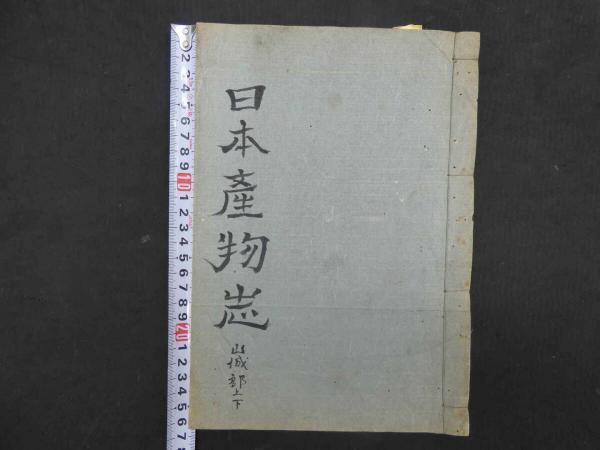 日本產物志
山城部上下
2
3
4
5
6
7
8
9
10
1
2
3
4
5
6
7
8
9
20
1
2
3
4
5